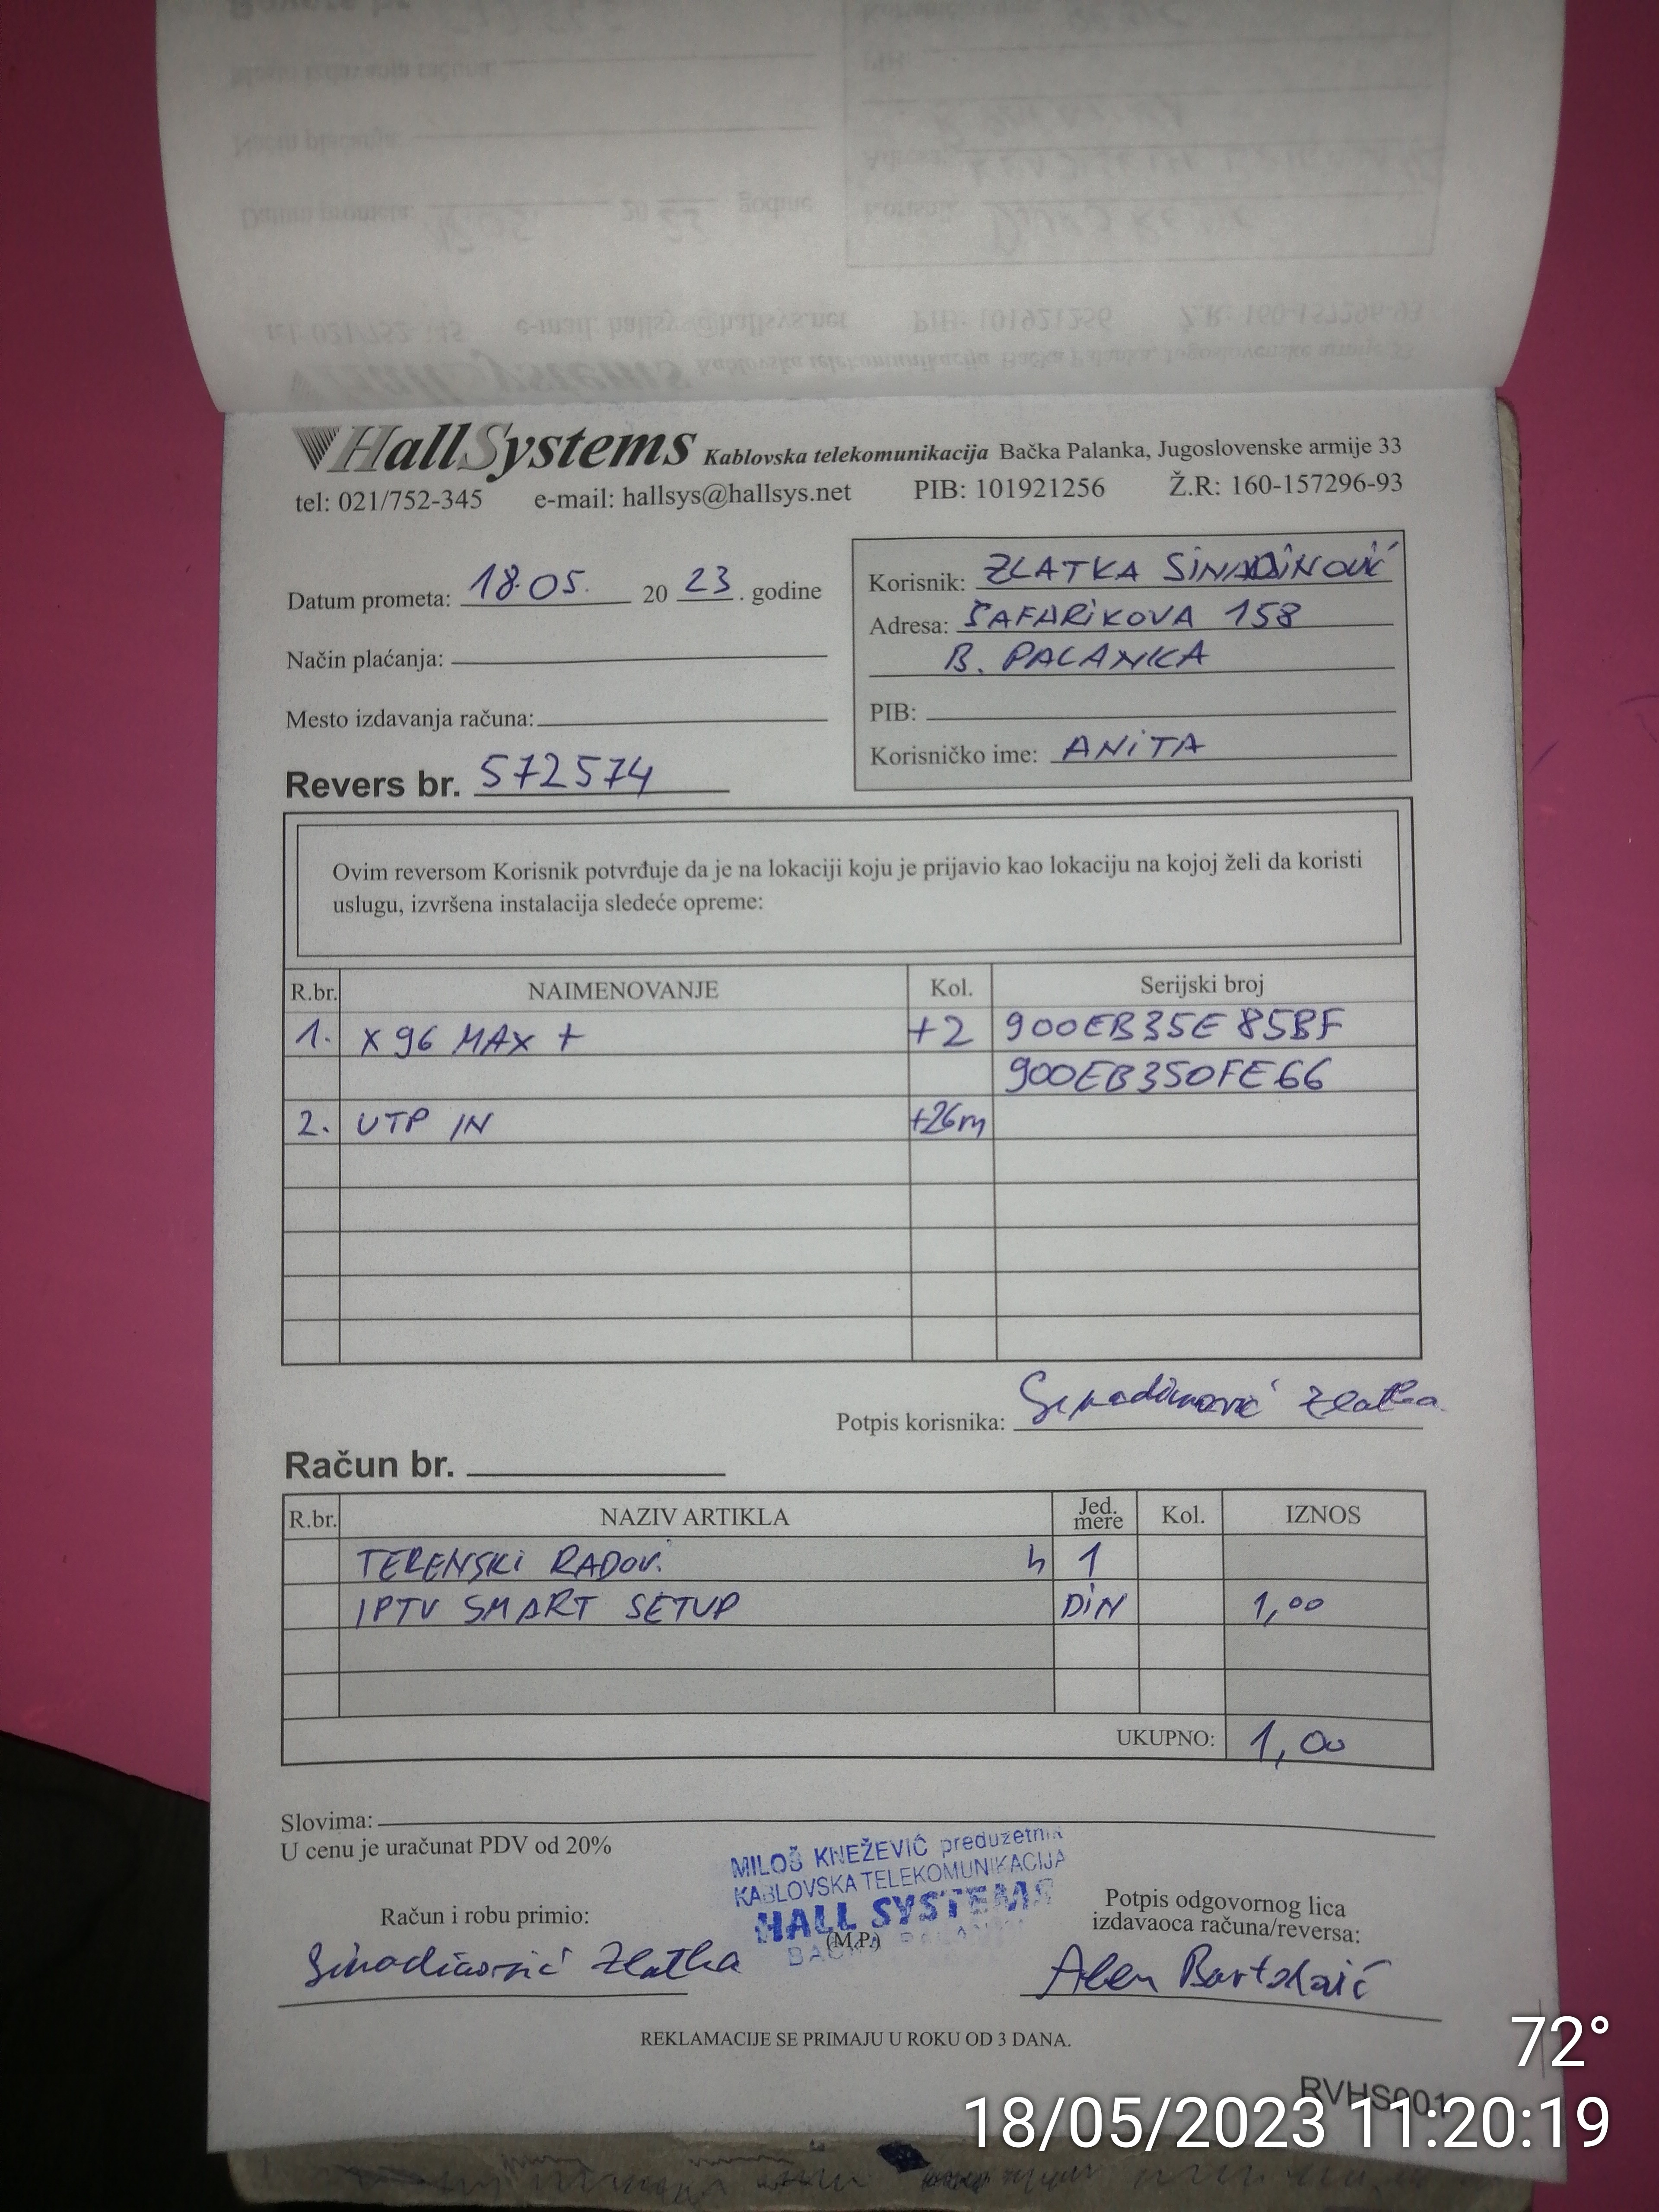 HallSystems Kablovska telekomunikacija Bačka Palanka, Jugoslovenske armije 33
tel: 021/752-345 e-mail: hallsys@hallsys.net PIB: 101921256 Ž.R: 160-157296-93
Datum prometa: 18.05. 20 23 . godine
Način plaćanja:
Mesto izdavanja računa:
Revers br. 572574
Korisnik: ZLATKA SINADINOVIĆ
Adresa: ŠAFARIKOVA 158
B. PALANKA
PIB:
Korisničko ime: ANITA
Ovim reversom Korisnik potvrđuje da je na lokaciji koju je prijavio kao lokaciju na kojoj želi da koristi
uslugu, izvršena instalacija sledeće opreme:
R.br. NAIMENOVANJE Kol. Serijski broj
1. X96 MAX + +2 900EB35E85BF
900EB350FE66
2. UTP IN +26m
Potpis korisnika: Sinadinović Zlatka
Račun br.
R.br. NAZIV ARTIKLA Jed. mere Kol. IZNOS
TERENSKI RADOVI h 1
IPTV SMART SETUP DIN 1,00
UKUPNO: 1,00
Slovima:
U cenu je uračunat PDV od 20%
MILOŠ KNEŽEVIĆ preduzetnik
KABLOVSKA TELEKOMUNIKACIJA
HALL SYSTEMS
BAČKA PALANKA
(M.P.)
Račun i robu primio:
Sinadinović Zlatka
Potpis odgovornog lica
izdavaoca računa/reversa:
Alen
REKLAMACIJE SE PRIMAJU U ROKU OD 3 DANA.
RVHS001
72°
18/05/2023 11:20:19